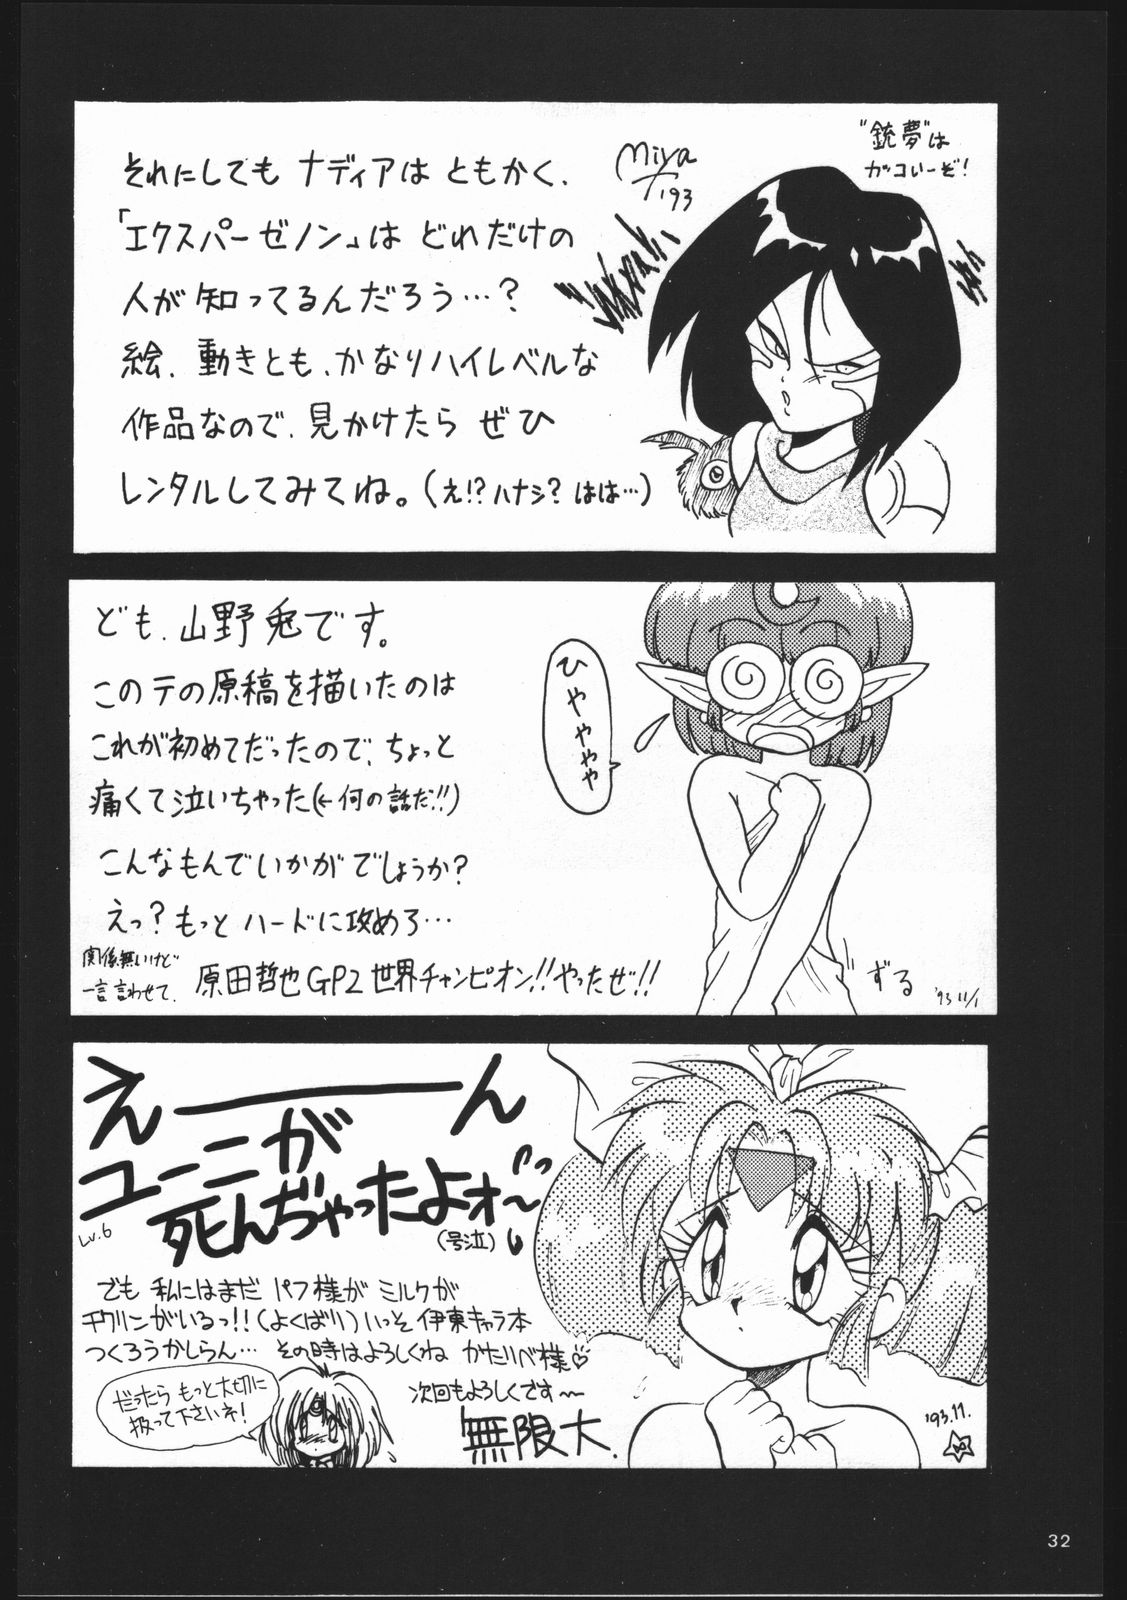 それにしても ナディアは ともかく、
「エクスパーゼノン」は どれだけの
人が 知ってるんだろう…？
絵、動きとも、かなりハイレベルな
作品なので、見かけたら ぜひ
レンタルしてみてね。（え!? ハナシ？ はは…）
Miya
'93
"銃夢"は
ガッコいーぞ！
ども、山野兎です。
このテの原稿を描いたのは
これが初めてだったので、ちょっと
痛くて泣いちゃった（←何の話だ!!）
こんなもんでいかがでしょうか？
えっ？もっと ハードに攻めろ…
関係無いけど
一言言わせて、
原田哲也GP2世界チャンピオン!!やったぜ!!
ひやややや
ずる
'93 11/1
えーーん
ユーニが
死んぢゃったよォ〜
Lv.6
（号泣）
でも 私にはまだ パフ様が ミルクが
チヴリンがいるっ!!（よくばり）いっそ 伊東キャラ本
つくろうかしらん… その時はよろしくね かたりべ様♡
だったら もっと大切に
扱って下さいネ！
次回もよろしくです〜
無限大.
'93.11.
32